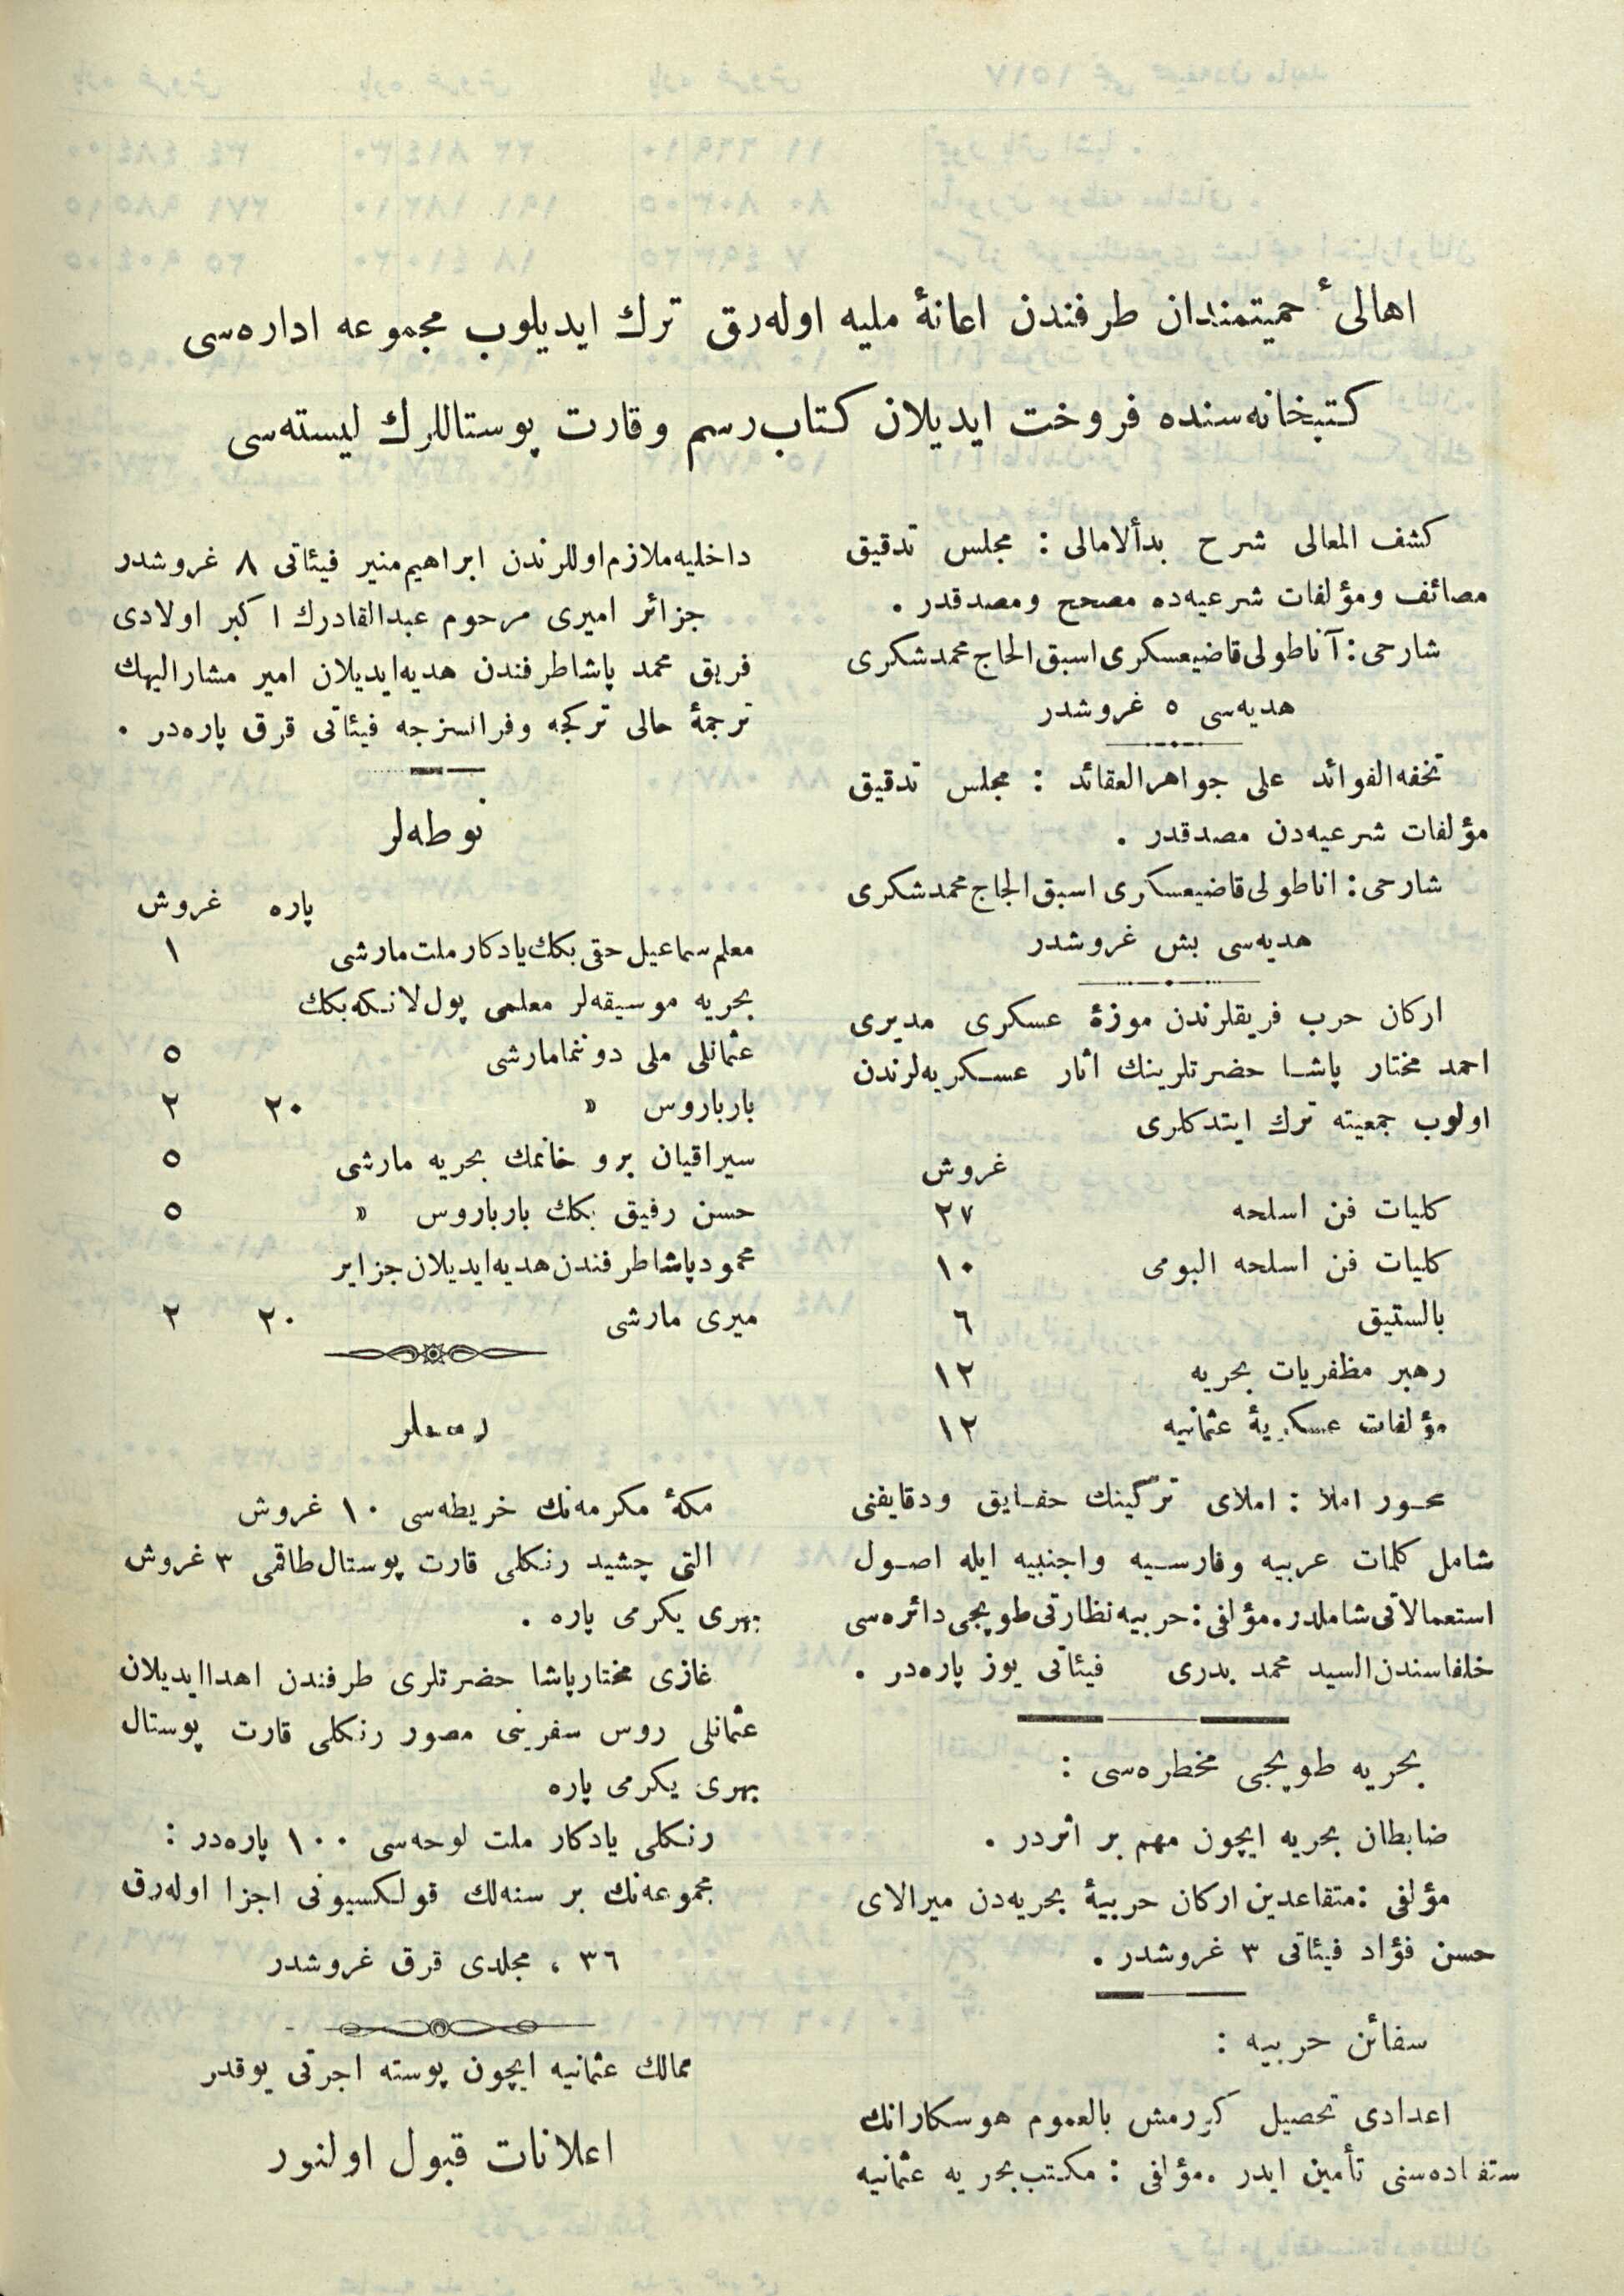 اهالیٔ حمیتمندان طرفندن اعانهٔ ملیه اوله‌رق ترك ایدیلوب مجموعه اداره‌سی
کتبخانه‌سنده فروخت ایدیلان کتاب رسم وقارت پوستاللرك لیسته‌سی
کشف المعالی شرح بدأالامالی : مجلس تدقیق
مصائف ومؤلفات شرعیه‌ده مصحح ومصدقدر .
شارحی : آناطولی قاضیعسکری اسبق الحاج محمد شکری
هدیه‌سی ٥ غروشدر
تحفه‌الفوائد علی جواهرالعقائد : مجلس تدقیق
مؤلفات شرعیه‌دن مصدقدر .
شارحی : اناطولی قاضیعسکری اسبق الحاج محمد شکری
هدیه‌سی بش غروشدر
ارکان حرب فریقلرندن موزهٔ عسکری مدیری
احمد مختار پاشا حضرتلرینك اثار عسکریه‌لرندن
اولوب جمعیته ترك ایتدکلری
غروش
کلیات فن اسلحه ٢٧
کلیات فن اسلحه البومی ١٠
بالستیق ٦
رهبر مظفریات بحریه ١٢
مؤلفات عسکریهٔ عثمانیه ١٢
محور املا : املای ترکینك حقایق ودقایقنی
شامل کلمات عربیه وفارسیه واجنبیه ایله اصول
استعمالاتی شاملدر . مؤلفی : حربیه نظارتی طوپجی دائره‌سی
خلفاسندن السید محمد بدری فیئاتی یوز پاره‌در .
بحریه طوپجی مخطره‌سی :
ضابطان بحریه ایچون مهم بر اثردر .
مؤلفی : متقاعدین ارکان حربیهٔ بحریه‌دن میرالای
حسن فؤاد فیئاتی ٣ غروشدر .
سفائن حربیه :
اعدادی تحصیل کورمش بالعموم هوسکارانك
ستفاده‌سنی تأمین ایدر . مؤلفی : مکتب بحریه عثمانیه
داخلیه ملازم اوللرندن ابراهیم منیر فیئاتی ٨ غروشدر
جزائر امیری مرحوم عبدالقادرك اکبر اولادی
فریق محمد پاشا طرفندن هدیه ایدیلان امیر مشارالیهك
ترجمهٔ حالی ترکجه وفرانسزجه فیئاتی قرق پاره‌در .
نوطه‌لر
پاره غروش
معلم سماعیل حقی بكك یادکار ملت مارشی ١
بحریه موسیقه‌لر معلمی پول لانکه بكك
عثمانلی ملی دونما مارشی ٥
بارباروس » ٢٠ ٢
سیراقیان برو خانمك بحریه مارشی ٥
حسن رفیق بكك بارباروس » ٥
محمود پاشا طرفندن هدیه ایدیلان جزایر
میری مارشی ٢٠ ٢
رسملر
مکهٔ مکرمه‌نك خریطه‌سی ١٠ غروش
التی چشید رنکلی قارت پوستال طاقمی ٣ غروش
بهری یکرمی پاره .
غازی مختار پاشا حضرتلری طرفندن اهدا ایدیلان
عثمانلی روس سفرینی مصور رنکلی قارت پوستال
بهری یکرمی پاره
رنکلی یادکار ملت لوحه‌سی ١٠٠ پاره‌در :
مجموعه‌نك بر سنه‌لك قولکسیونی اجزا اوله‌رق
٣٦ ، مجلدی قرق غروشدر
ممالك عثمانیه ایچون پوسته اجرتی یوقدر
اعلانات قبول اولنور